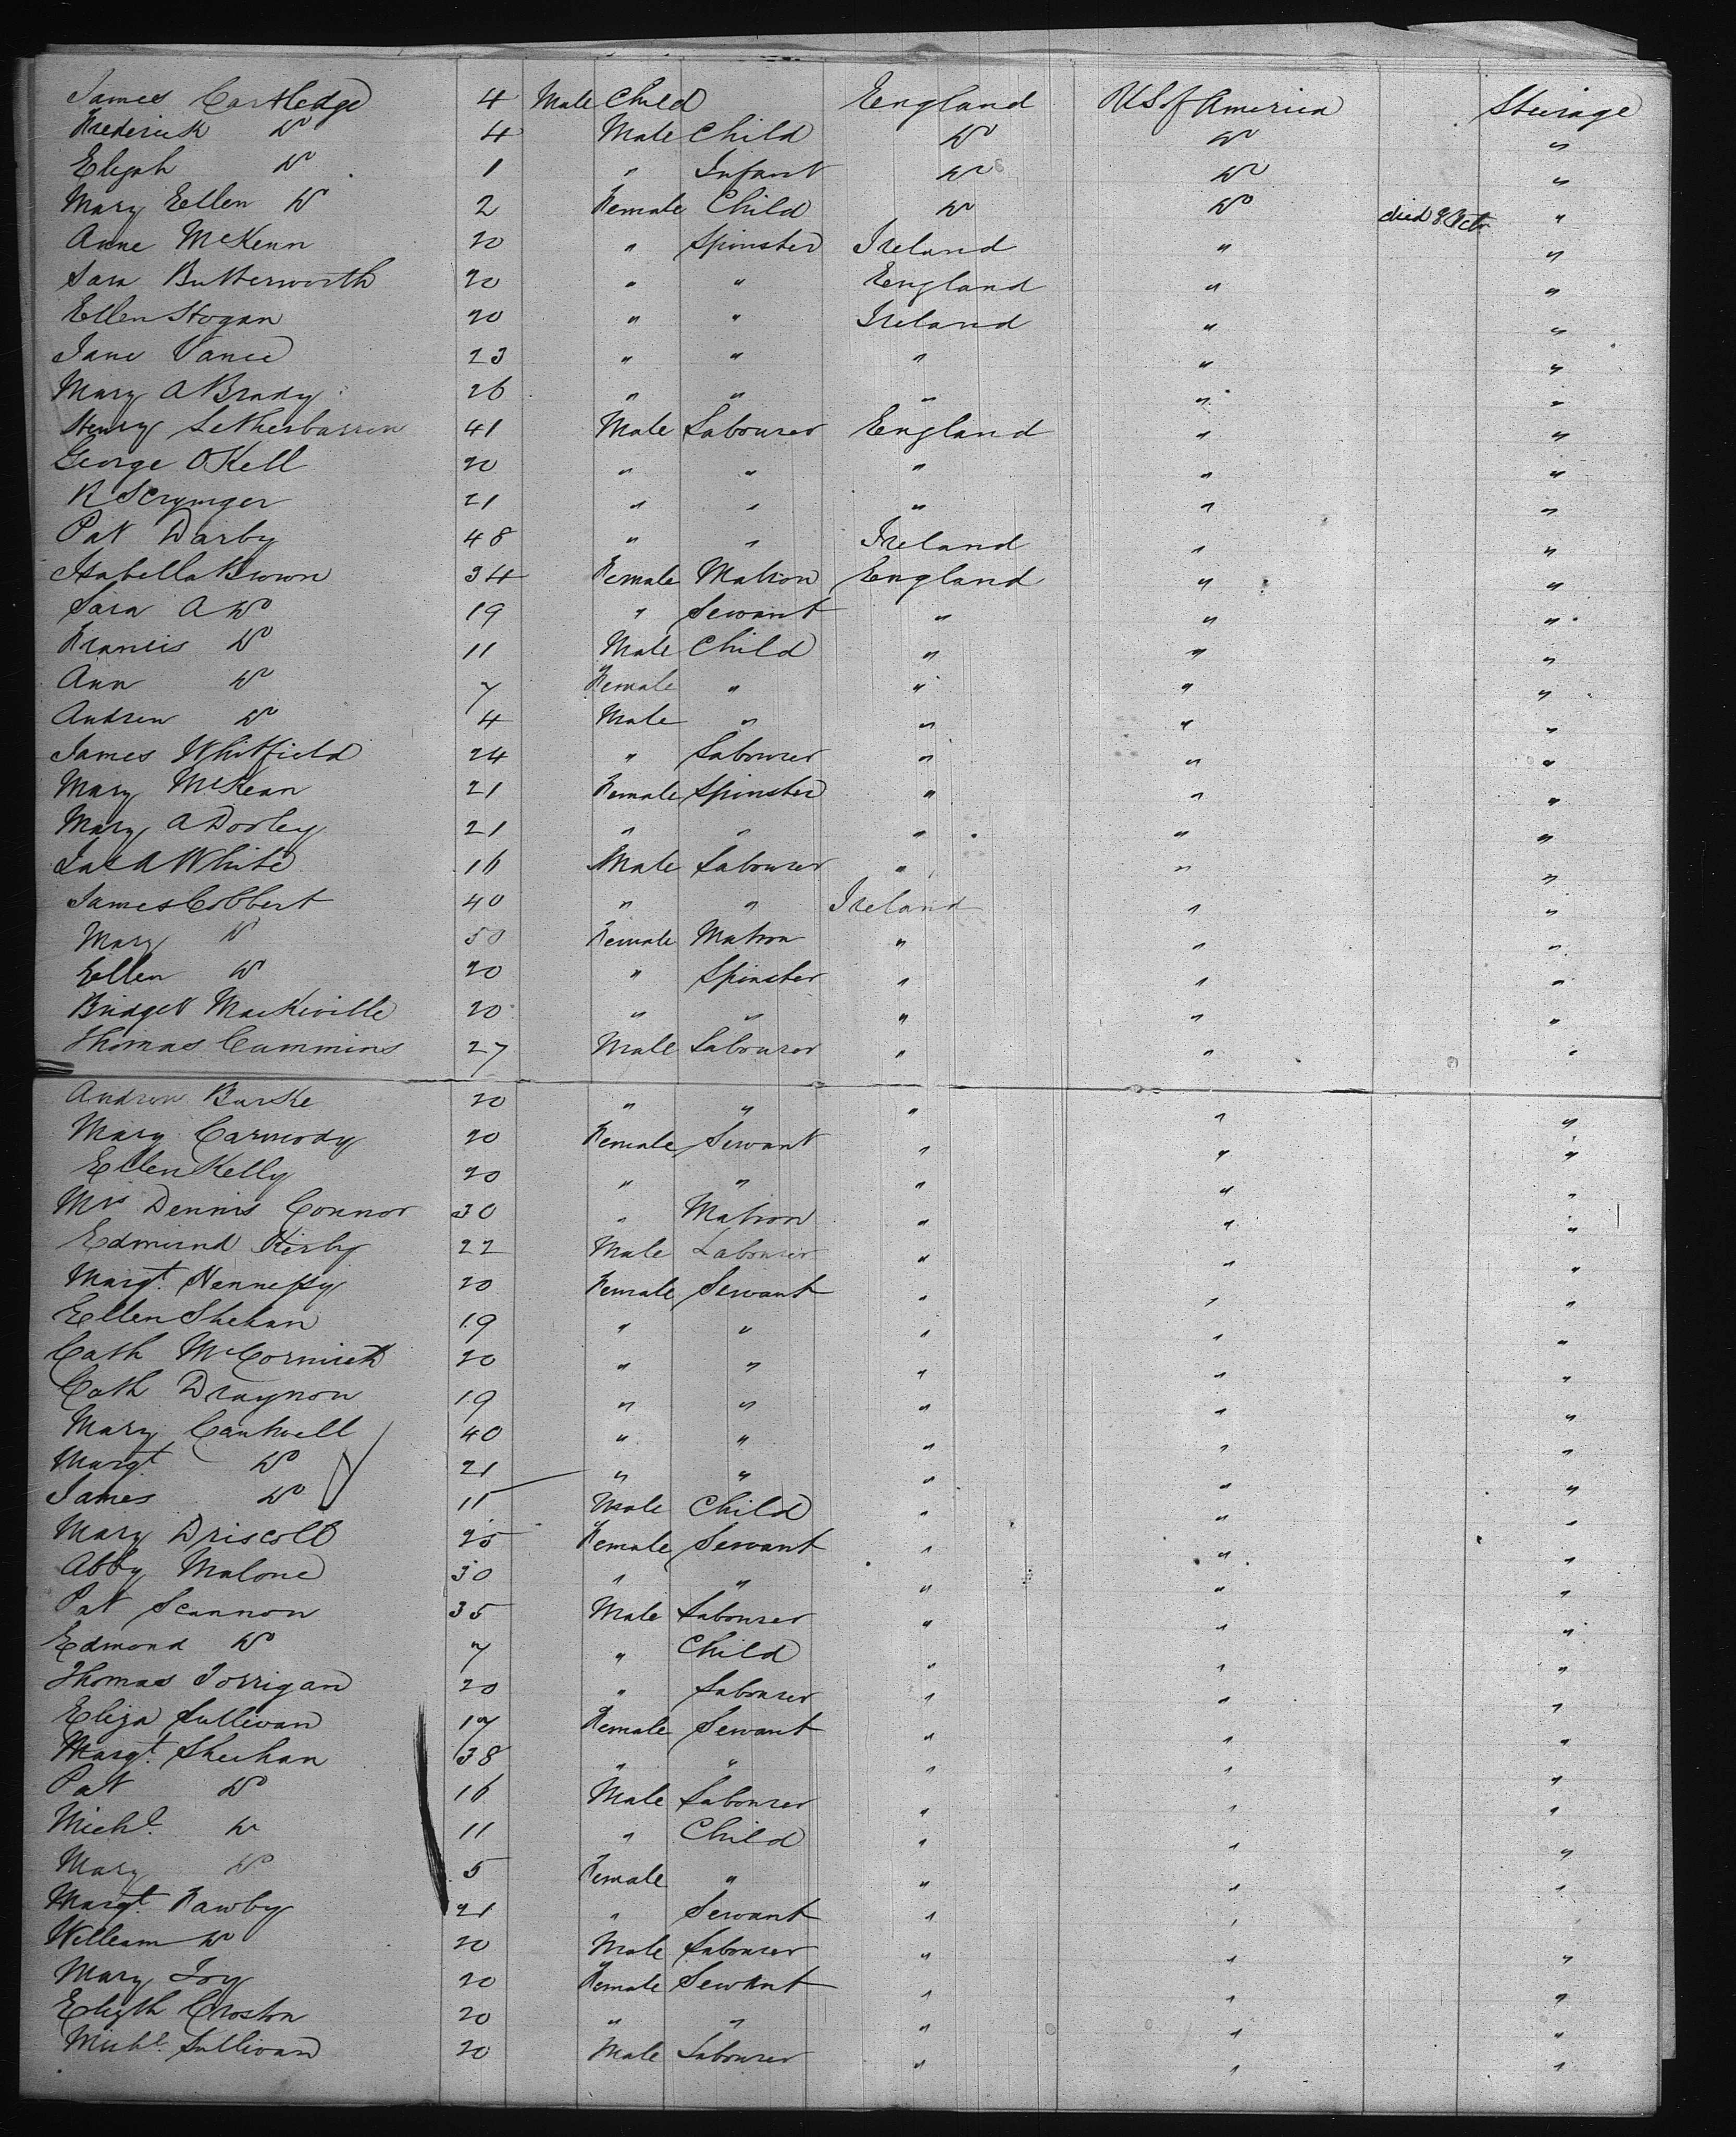 James Cartledge 4 Male Child England US of America Steurage
Frederick Do 4 Male Child Do Do "
Elijah Do 1 " Infant Do Do "
Mary Ellen Do 2 Female Child Do Do died 9 Octr "
Anne McKenn 20 " Spinster Ireland " "
Sara Butterworth 20 " " England " "
Ellen Hogan 20 " " Ireland " "
Jane Vance 23 " " " " "
Mary A Brady 26 " " " " "
Henry 41 Male Labourer England " "
George OKell 20 " " " " "
R Scrymger 21 " " " " "
Pat Darby 48 " " Ireland " "
Isabella Brown 34 Female Matron England " "
Sara A Do 19 " Servant " " "
Francis Do 11 Male Child " " "
Ann Do 7 Female " " " "
Andrew Do 4 Male " " " "
James Whitfield 24 " Labourer " " "
Mary McKean 21 Female Spinster " " "
Mary A Dooley 21 " " " " "
A White 16 Male Labourer " " "
James Cobbert 40 " " Ireland " "
Mary Do 50 Female Matron " " "
Ellen Do 20 " Spinster " " "
Bridget MacKiville 20 " " " " "
Thomas Cummins 27 Male Labourer " " "
Andrew Burke 20 " " " " "
Mary Carmody 20 Female Servant " " "
Ellen Kelly 20 " " " " "
Mrs Dennis Connor 30 " Matron " " "
Edmund Kirby 22 Male Labourer " " "
Margt. Hennessy 20 Female Servant " " "
Ellen Shehan 19 " " " " "
Cath McCormick 20 " " " " "
Cath Draynon 19 " " " " "
Mary Cantwell 40 " " " " "
Margt. Do 21 " " " " "
James Do 11 Male Child " " "
Mary Driscoll 25 Female Servant " " "
Abby Malone 30 " " " " "
Pat Scannon 35 Male Labourer " " "
Edmond Do 7 " Child " " "
Thomas Torrigan 20 " Labourer " " "
Eliza Sullivan 17 Female Servant " " "
Margt. Sheehan 38 " " " " "
Pat Do 16 Male Labourer " " "
Michl. Do 11 " Child " " "
Mary Do 5 Female " " " "
Margt. Fawby 21 " Servant " "
William Do 20 Male Labourer " " "
Mary Joy 20 Female Servant " " "
Elizth Croston 20 " " " " "
Michl. Sullivan 20 Male Labourer " " "